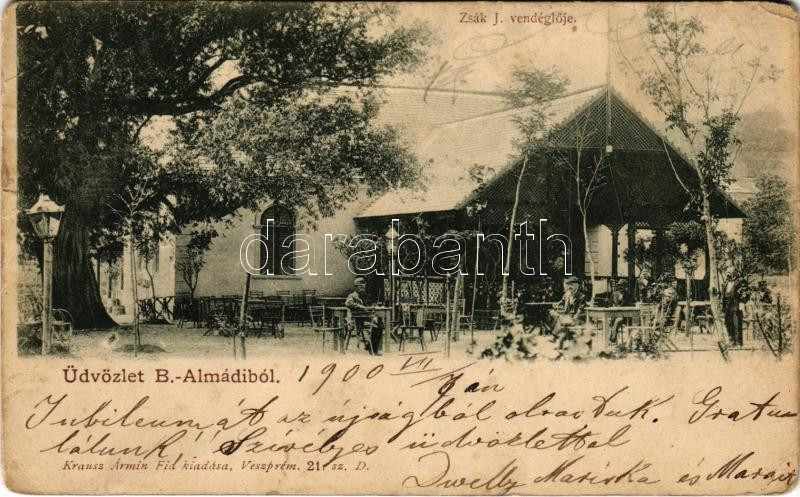 Zsák J. vendéglője.
darabanth.com
Üdvözlet B.-Almádiból. 1900 VII/
Jubileumát az újságból olvastuk. Gratu
lálunk! Szívélyes üdvözlettel
Krausz Ármin Fia kiadása, Veszprém. 21. sz. D.
Mariska és Margit